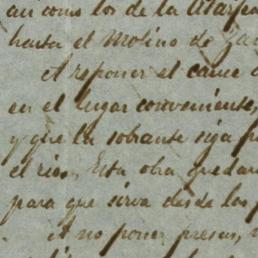 asi como los de la Atarjea
hasta el Molino de
A reponer el cauce
en el lugar conveniente,
y que la sobrante siga
el rio, Esta obra quedará
para que sirva desde los
A no poner presas,